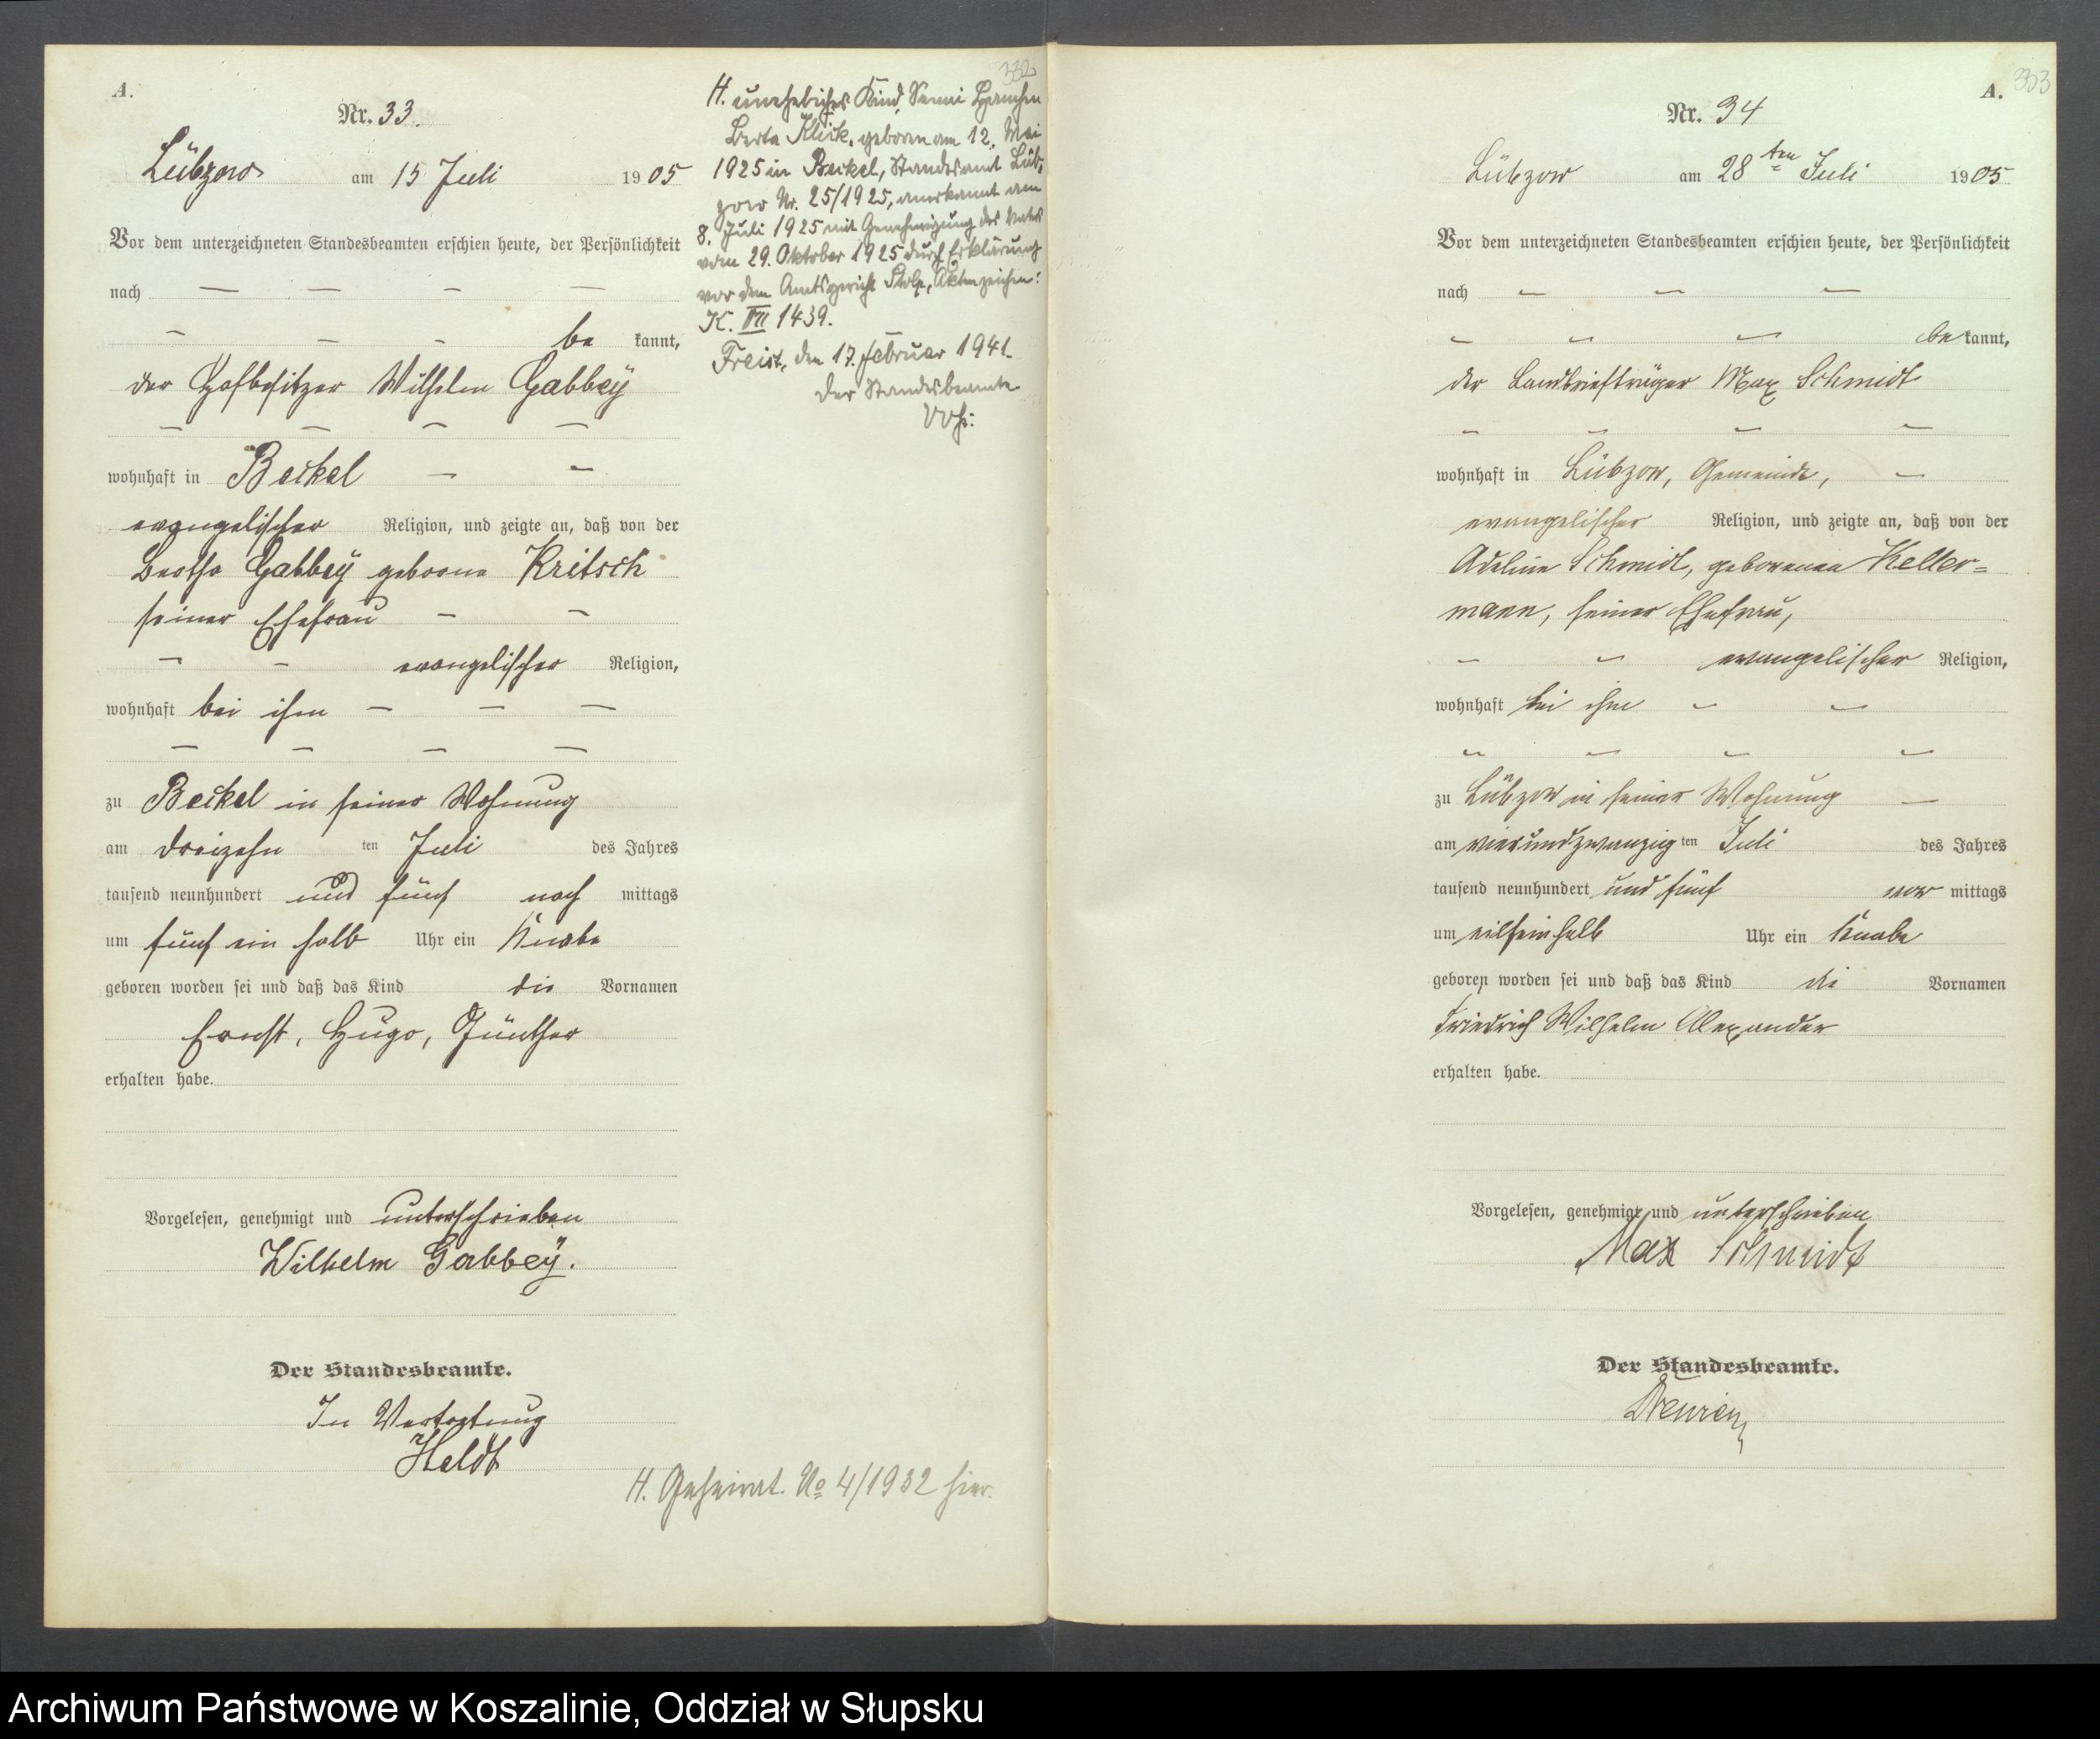 A.
Nr. 33.
Lübzow am 15 Juli 1905
Vor dem unterzeichneten Standesbeamten erschien heute, der Persönlichkeit
nach — — — —
— — — be kannt,
der Hofbesitzer Wilhelm Gabbey
— — — —
wohnhaft in Beckel — —
evangelischer Religion, und zeigte an, daß von der
Bertha Gabbey geborne Kritsch
seiner Ehefrau — —
— — evangelischer Religion,
wohnhaft bei ihm — — —
— — — —
zu Beckel in seiner Wohnung
am dreizehn ten Juli des Jahres
tausend neunhundert und fünf nach mittags
um fünf ein halb Uhr ein Knabe
geboren worden sei und daß das Kind die Vornamen
Ernst, Hugo, Günther
erhalten habe.
Vorgelesen, genehmigt und unterschrieben
Wilhelm Gabbey.
Der Standesbeamte.
In Vertretung
Heldt
332
H. uneheliches Kind, Hannchen
Berta Klick, geboren am 12. Mai
1925 in Beckel, Standesamt Lüb-
zow Nr. 25/1925, anerkannt am
8. Juli 1925 mit Genehmigung des Vaters
vom 29. Oktober 1925 durch Erklärung
vor dem Amtsgericht Stolp, Aktenzeichen:
K. VII 1439.
Freist, den 17. Februar 1941.
Der Standesbeamte
H. Geheirat. No 4/1932 hier.
A. 333
Nr. 34
Lübzow am 28 ten Juli 1905
Vor dem unterzeichneten Standesbeamten erschien heute, der Persönlichkeit
nach — — —
— — — be kannt,
der Landbriefträger Max Schmidt
— — — —
wohnhaft in Lübzow, Gemeinde, —
evangelischer Religion, und zeigte an, daß von der
Adeline Schmidt, geborenen Keller=
mann, seiner Ehefrau,
— — evangelischer Religion,
wohnhaft bei ihm — —
— — — —
zu Lübzow in seiner Wohnung —
am vierundzwanzig ten Juli des Jahres
tausend neunhundert und fünf vor mittags
um eilfeinhalb Uhr ein Knabe
geboren worden sei und daß das Kind die Vornamen
Friedrich Wilhelm Alexander
erhalten habe.
Vorgelesen, genehmigt und unterschrieben
Max Schmidt
Der Standesbeamte.
Archiwum Państwowe w Koszalinie, Oddział w Słupsku